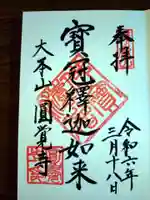 奉拝
寶冠釋迦如来
大本山圓覺寺
令和六年
三月十八日